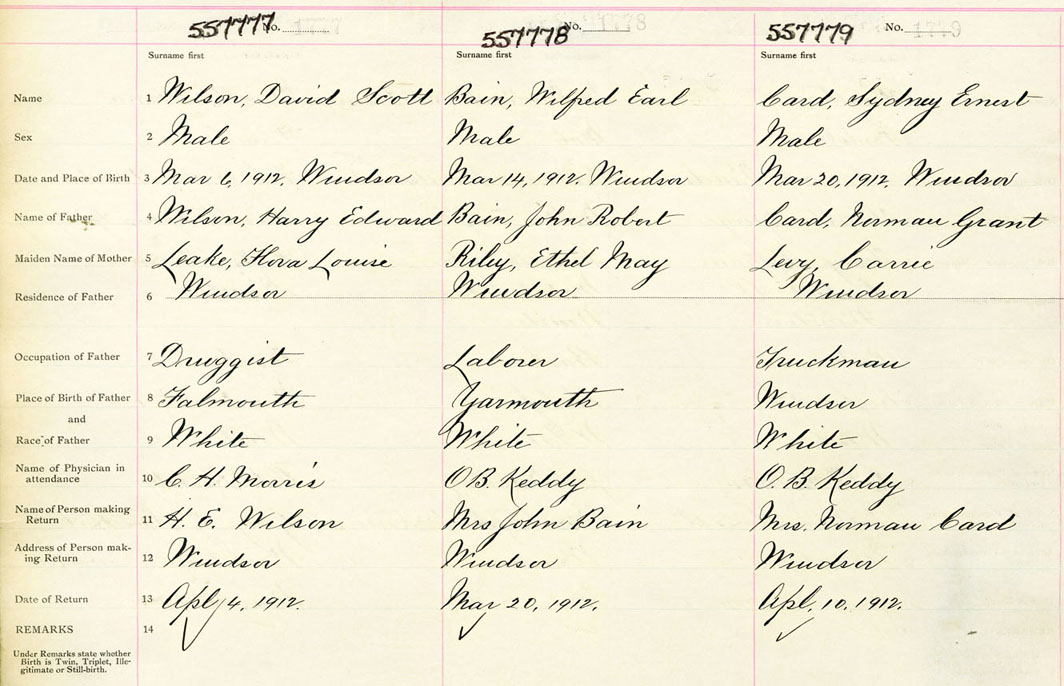 557777 No. 1777 557778 No. 1778 557779 No. 1779
Surname first Surname first Surname first
Name 1 Wilson, David Scott Bain, Wilfred Earl Card, Sydney Ernest
Sex 2 Male Male Male
Date and Place of Birth 3 Mar 6, 1912. Windsor Mar 14, 1912. Windsor Mar 20, 1912. Windsor
Name of Father 4 Wilson, Harry Edward Bain, John Robert Card, Norman Grant
Maiden Name of Mother 5 Leake, Flora Louise Riley, Ethel May Levy, Carrie
Residence of Father 6 Windsor Windsor Windsor
Occupation of Father 7 Druggist Laborer Truckman
Place of Birth of Father 8 Falmouth Yarmouth Windsor
and
Race of Father 9 White White White
Name of Physician in
attendance 10 C. H. Morris O B. Keddy O. B. Keddy
Name of Person making
Return 11 H. E. Wilson Mrs John Bain Mrs. Norman Card
Address of Person mak-
ing Return 12 Windsor Windsor Windsor
Date of Return 13 Apl 4, 1912. Mar 20, 1912. Apl, 10, 1912.
REMARKS 14
Under Remarks state whether
Birth is Twin, Triplet, Ille-
gitimate or Still-birth.